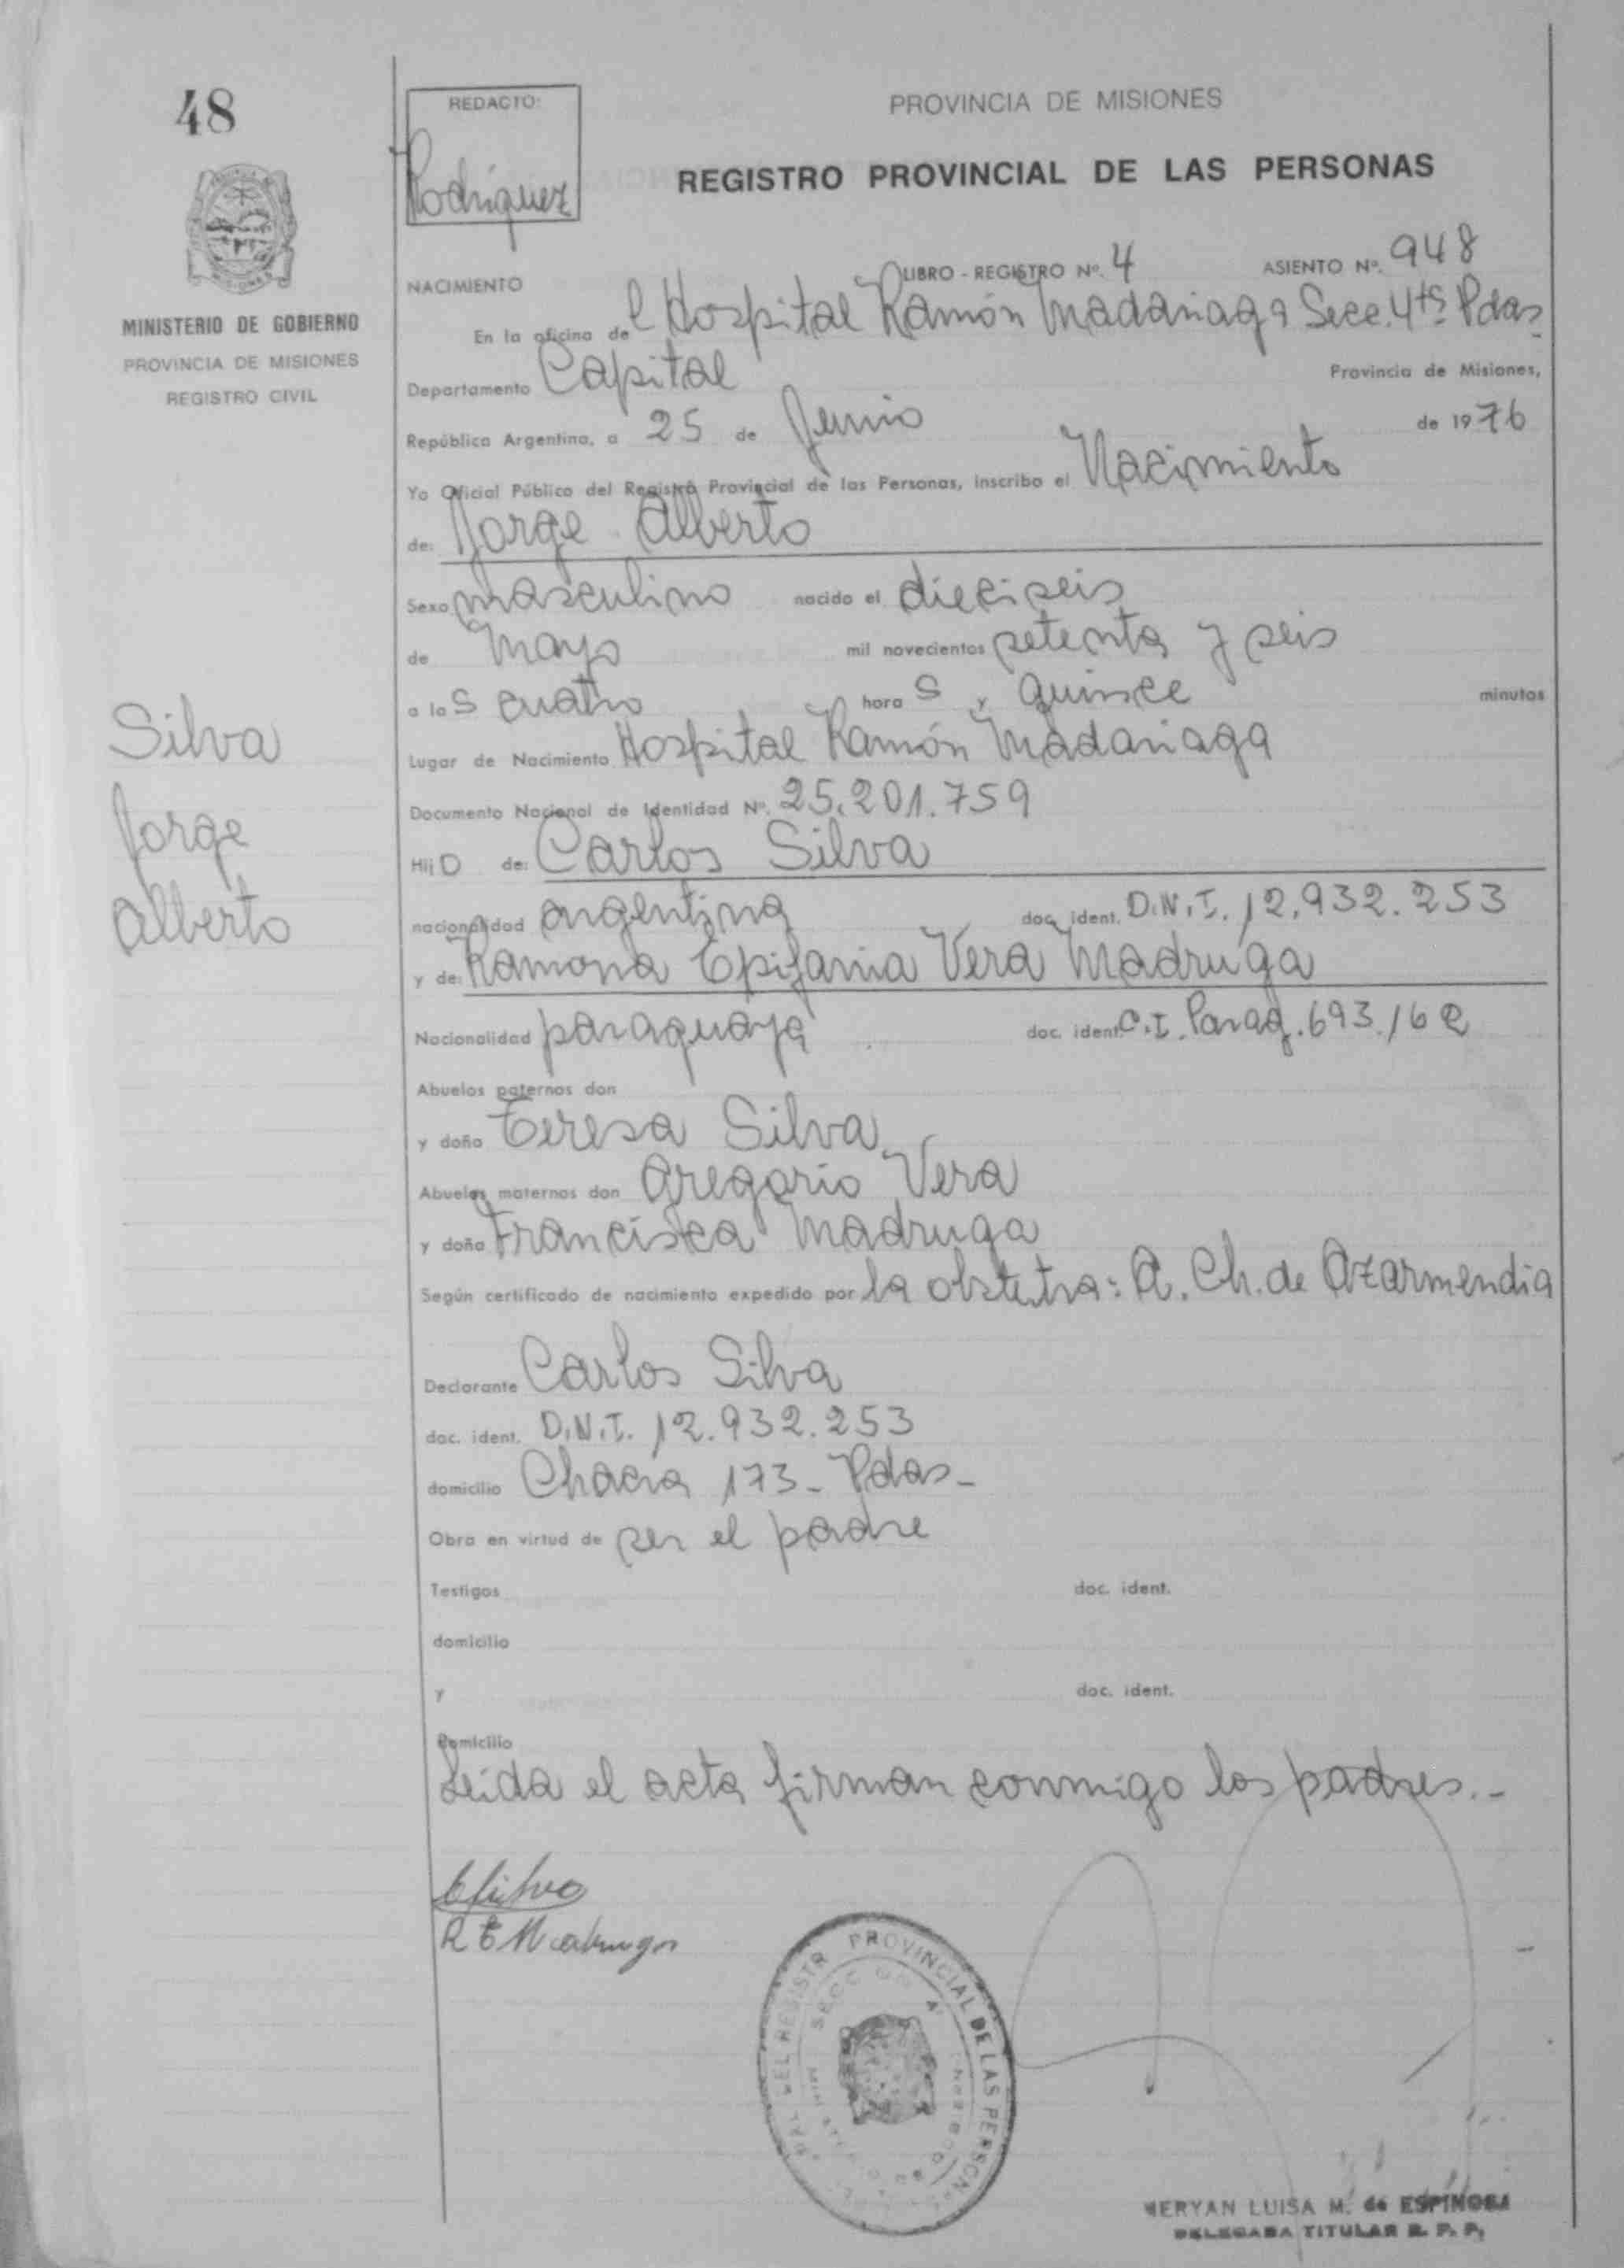 48
REDACTO:
Rodriguez
PROVINCIA DE MISIONES
REGISTRO PROVINCIAL DE LAS PERSONAS
MINISTERIO DE GOBIERNO
PROVINCIA DE MISIONES
REGISTRO CIVIL
Silva
Jorge
Alberto
NACIMIENTO LIBRO - REGISTRO Nº. 4 ASIENTO Nº. 948
En la oficina del Hospital Ramón Madariaga Secc. 4ta Pdas
Departamento Capital Provincia de Misiones,
República Argentina, a 25 de Junio de 1976
Yo Oficial Público del Registro Provincial de las Personas, inscribo el Nacimiento
de: Jorge Alberto
Sexo masculino nacido el dieciseis
de Mayo mil novecientos setenta y seis
a las cuatro horas y quince minutos
Lugar de Nacimiento Hospital Ramón Madariaga
Documento Nacional de Identidad Nº. 25.201.759
Hijo de: Carlos Silva
nacionalidad argentina doc. ident. D.N.I. 12.932.253
y de: Ramona Epifania Vera Madruga
Nacionalidad paraguaya doc. ident. C.I. Parag. 693.162
Abuelos paternos don
y doña Teresa Silva
Abuelos maternos don Gregorio Vera
y doña Francisca Madruga
Según certificado de nacimiento expedido por la obstetra: A. Ch. de Azarmendia
Declarante Carlos Silva
doc. ident. D.N.I. 12.932.253
domicilio Chacra 173 - Pdas -
Obra en virtud de ser el padre
Testigos doc. ident.
domicilio
y doc. ident.
Domicilio
Leida el acta firman conmigo los padres.-
CSilva
R E Madruga
REGISTR PROVINCIAL DE LAS PERSON
MERYAN LUISA M. de ESPINOSA
DELEGADA TITULAR R. P. P.